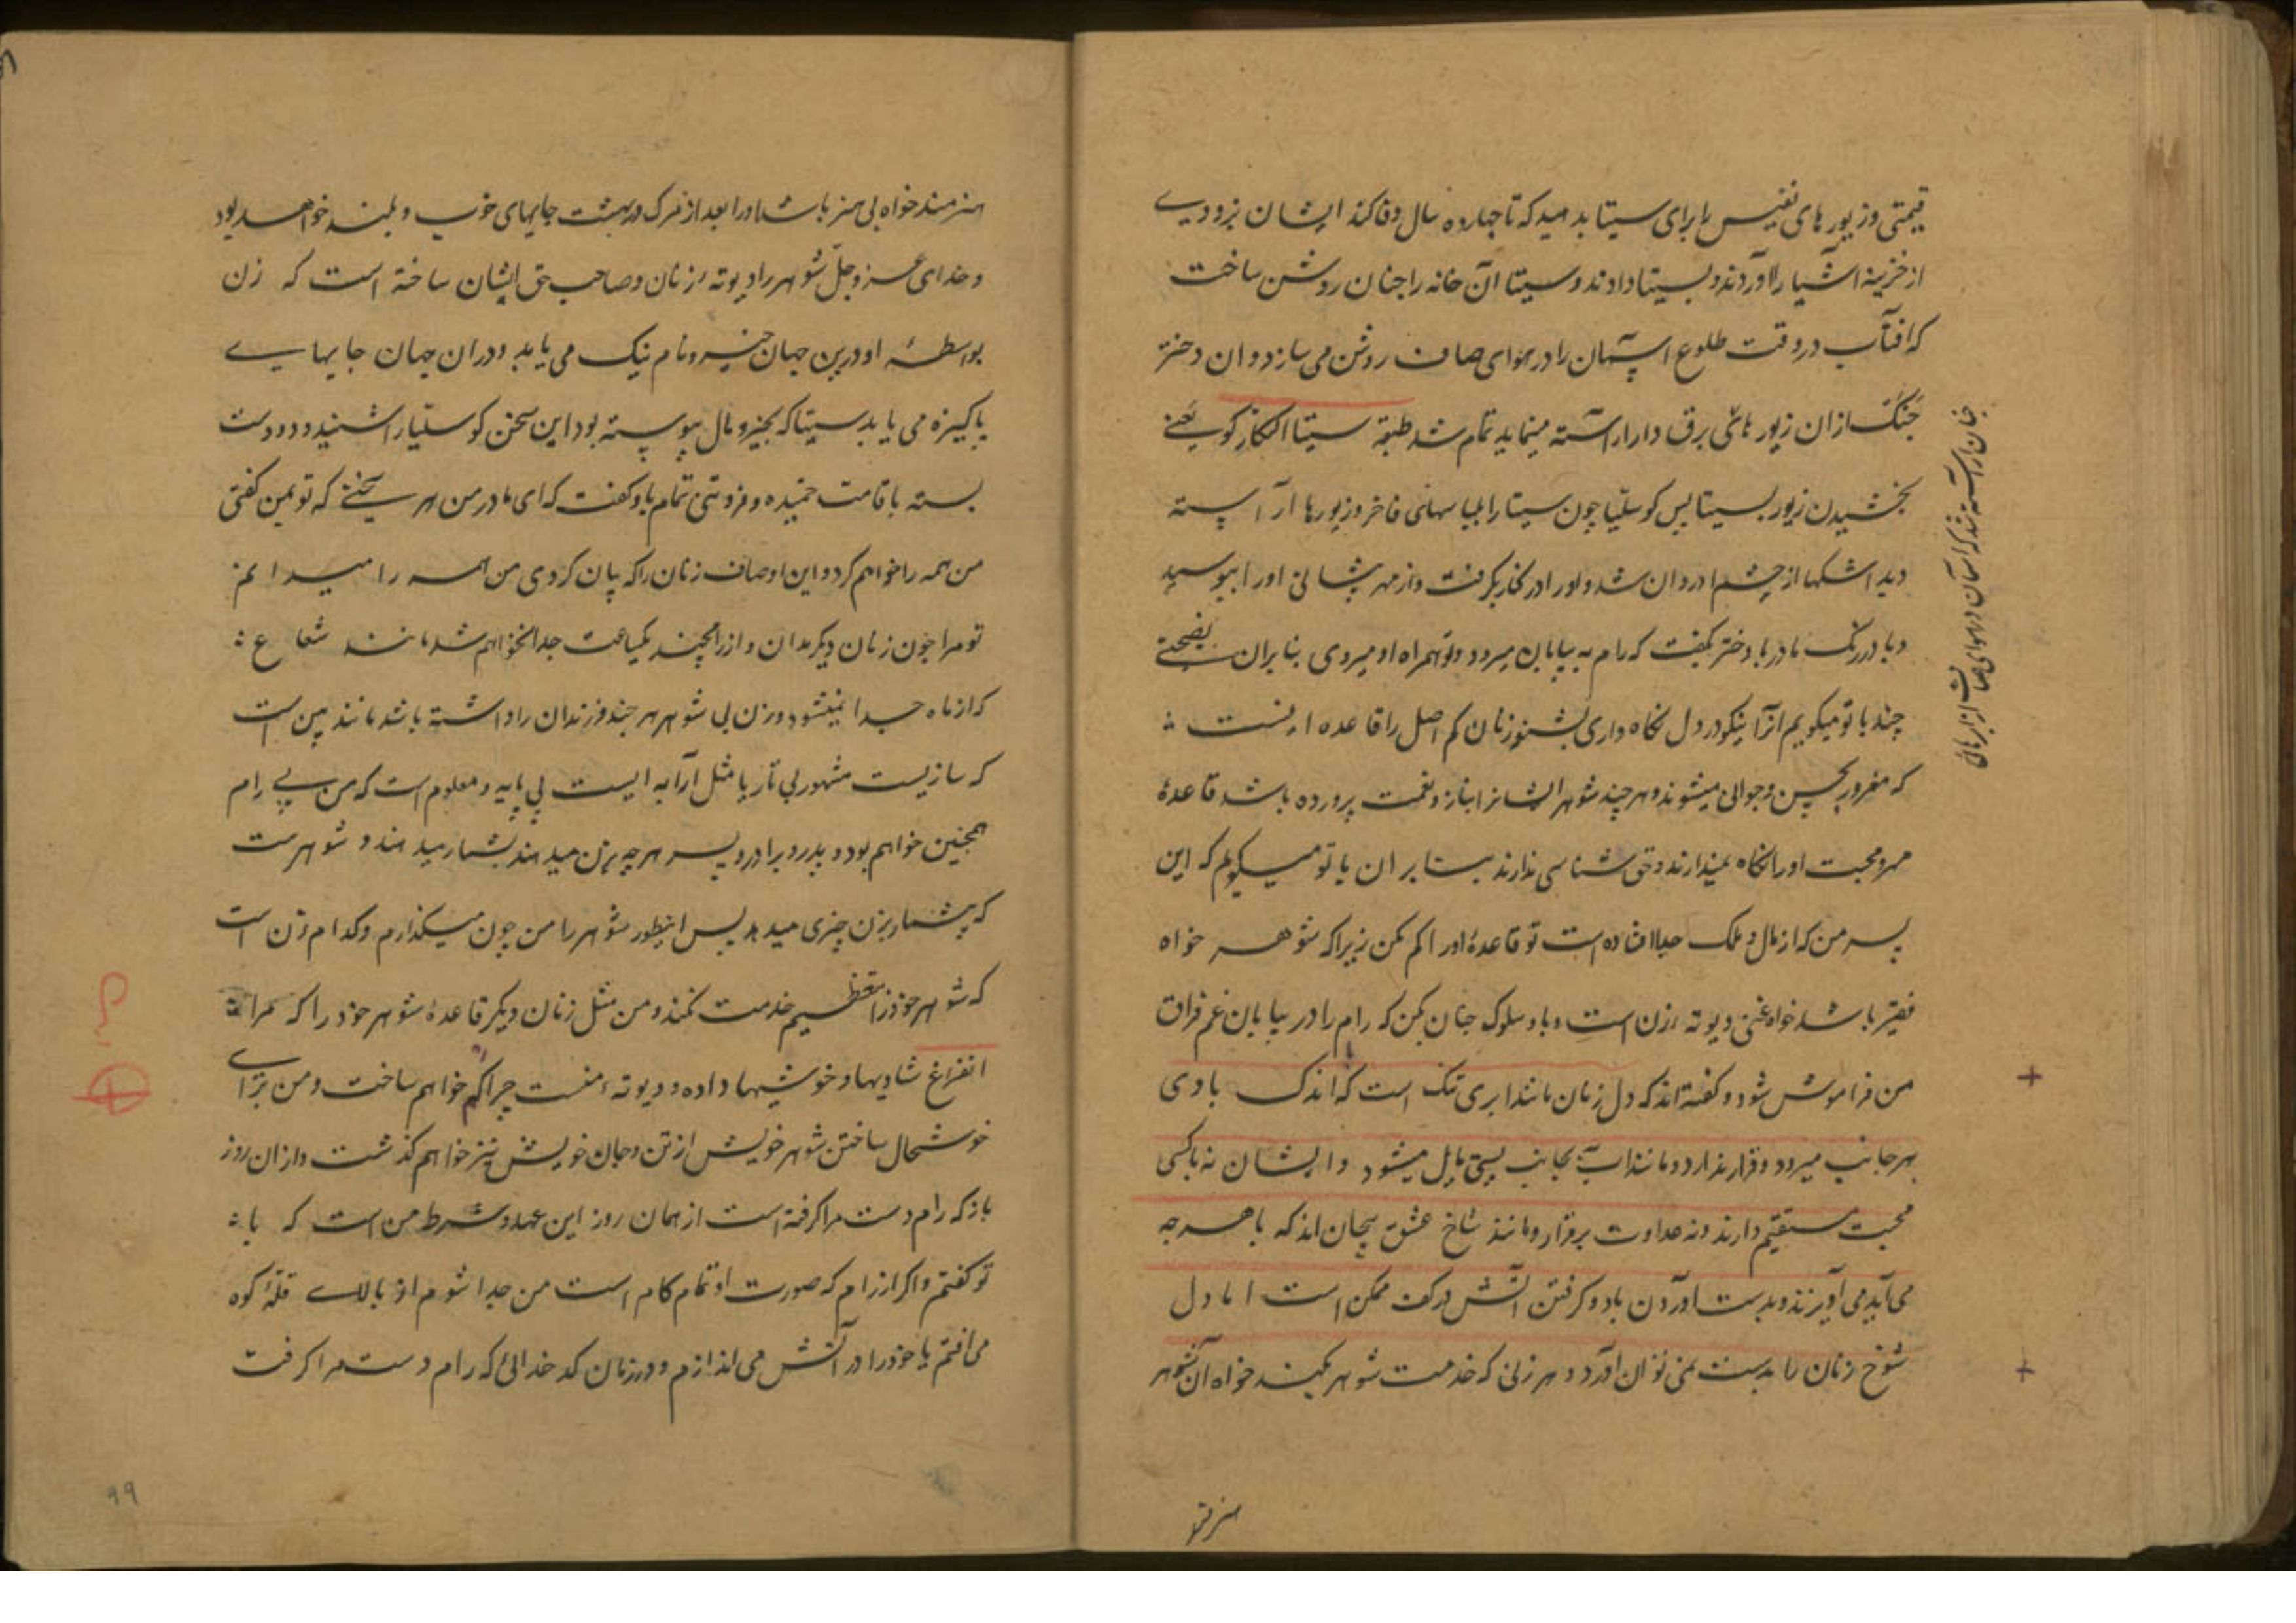 قیمتی و زیور های نفیس را برای سیتا بدهید که تا چهارده سال وفا کند ایشان بزودی
از خزینه اشیا را آوردند و بسیتا دادند و سیتا آن خانه را چنان روشن ساخت
که افتاب در وقت طلوع اسمان را در هوای صاف روشن می سازد و ان دختر
جنک از ان زیور های برق دار اراسته مینماید تمام شد طبقه سیتا النکار کو یعنی
بخشیدن زیور بسیتا پس کوسلیا چون سیتا را بلباسهای فاخر و زیورها آراسته
دید اشکها از چشم او روان شد و او را در کنار بگرفت و از مهر پیشانی او را ببوسید
و با او در رنگ مادر با دختر گفت که رام به بیابان میرود و تو همراه او میروی بنابران نصیحتی
چند با تو میکویم انرا نیکو در دل نگاه داری بشنو زنان کم اصل را قاعده اینست
که مغرور بحسن و جوانی میشوند و هر چند شوهر ایشانرا بناز و نعمت پرورده باشد قاعدهٔ
مهر و محبت او را نگاه نمیدارند و حق شناسی ندارند بنابران با تو میکویم که این
پسر من که از مال و ملک جدا افتاده است تو قاعدهٔ او را کم مکن زیرا که شوهر خواه
فقیر باشد خواه غنی دیوته زن است و با او سلوک چنان بکن که رام را در بیابان غم فراق
من فراموش شود و گفته اند که دل زنان مانند ابری تنک است که اندک بادی
بهر جانب میرود و قرار ندارد و مانند اب بجانب پستی مایل میشود و ایشان نه با کسی
محبت مستقیم دارند و نه عداوت برقرار و مانند شاخ عشق پیچان اند که با هر چه
می آید می آویزند و بدست اوردن باد و گرفتن آتش در کف ممکن است اما دل
شوخ زنان را بدست نمی توان اورد و هر زنی که خدمت شوهر بکند خواه آن شوهر
چنان اراسته شد که اسمان در هوای صاف از ابر های
هنرمند خواه بی هنر باشد او را بعد از مرک در بهشت جایهای خوب و بلند خواهد بود
و خدای عز و جل شوهر را دیوته زنان و صاحب حق ایشان ساخته است که زن
بواسطهٔ او درین جهان خیر و نام نیک می یابد و دران جهان جایهای
پاکیزه می یابد سیتا که بخیر و مال پیوسته بود این سخن کوسلیا را شنید و دو دست
بسته با قامت خمیده و فروتنی تمام باو گفت که ای مادر من هر سخنی که تو بمن گفتی
من همه را خواهم کرد و این اوصاف زنان را که بیان کردی من همه را میدانم
تو مرا چون زنان دیگر مدان و از رامچند یکساعت جدا نخواهم شد مانند شعاع
که از ماه جدا نمیشود و زن بی شوهر هر چند فرزندان را داشته باشد مانند بین است
که سازیست مشهور بی تار یا مثل آرابه ایست بی پایه و معلوم است که من بے رام
همچنین خواهم بود و پدر و برادر و پسر هر چه بزن میدهند بشمار میدهند و شوهرست
که بیشمار بزن چیزی میدهد پس اینطور شوهر را من چون میگذارم و کدام زن است
که شوهر خود را تعظیم خدمت نکند و من مثل زنان دیگر قاعدهٔ شوهر خود را که مرا
شادیها و خوشیها داده و دیوته منست چرا کم خواهم ساخت و من برای
خوشحال ساختن شوهر خویش از تن و جان خویش نیز خواهم گذشت و ازان روز
باز که رام دست مرا گرفته است از همان روز این عهد و شرط من است که با
تو گفتم و اگر از رام که صورت او تمام کام است من جدا شوم از بالاے قلهٔ کوه
می افتم یا خود را در آتش می اندازم و در زمان کدخدائی که رام دست مرا گرفت
۹۹